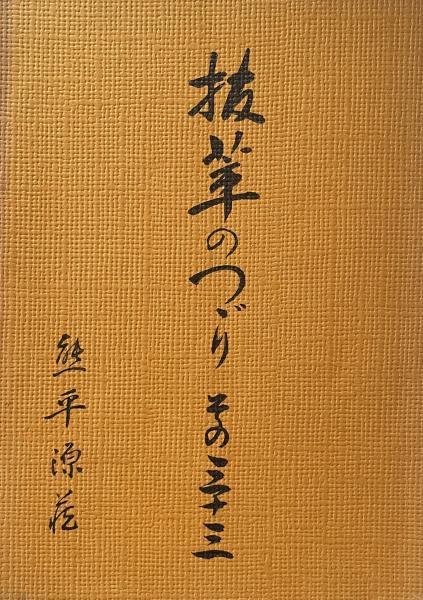 抜萃のつゞり その三十三
熊平源蔵